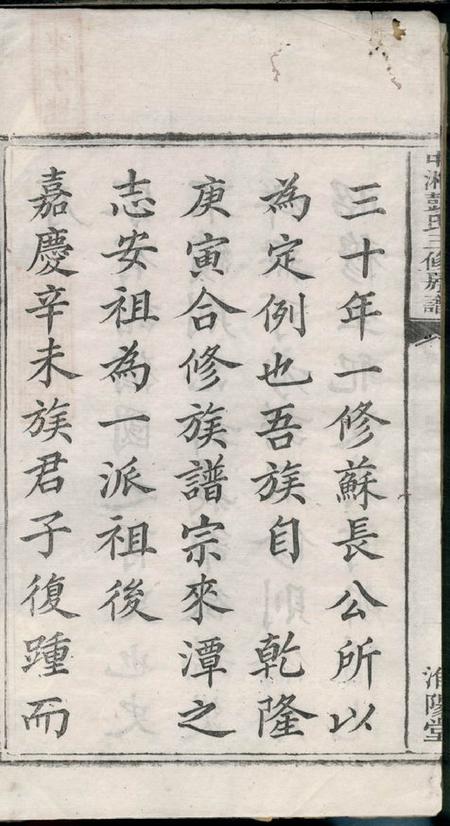 三十年一修蘇長公所以
為定例也吾族自　乾隆
庚寅合修族譜宗來潭之
志安祖為一派祖後
嘉慶辛未族君子復踵而
中湘彭氏三修房譜
淮陽堂